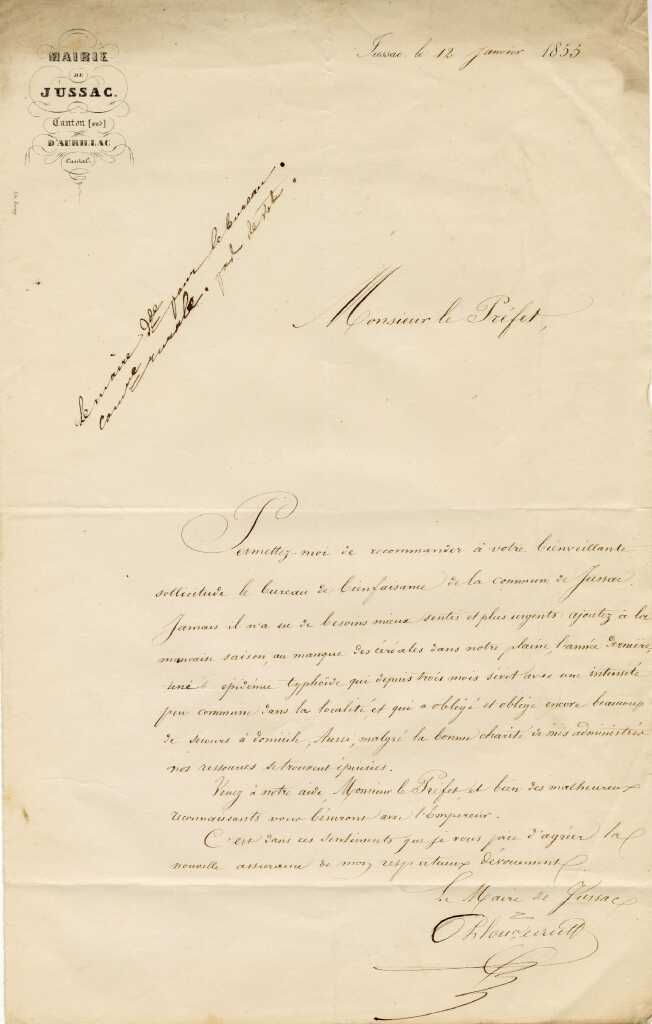 MAIRIE
DE
JUSSAC.
Canton [sud]
D'AURILLAC
Cantal.
Jussac le 12 Janvier 1855
Le maire pour le bureau
rurale.
Monsieur le Préfet,
Permettez-moi de recommander à votre bienveillante
sollicitude le bureau de bienfaisance de la commun de Jussac.
Jamais il n'a eu de besoins mieux sentis et plus urgents ajoutez à la
mauvaise saison, au manque des céréales dans notre plaine, l'année dernière,
une épidémie typhoïde qui depuis trois mois sévit avec une intensité
peu commune dans la localité et qui a obligé et oblige encore beaucoup
de secours à domicile, Aussi, malgré la bonne charité de mes administrés
nos ressources se trouvent épuisées.
Venez à notre aide Monsieur le Préfet et bien des malheureux
reconnaissants vous bénirons avec l'Empereur.
C'est dans ces sentiments que je vous prie d'agréer la
nouvelle assurance de mon respectueux dévouement
Le Maire de Jussac